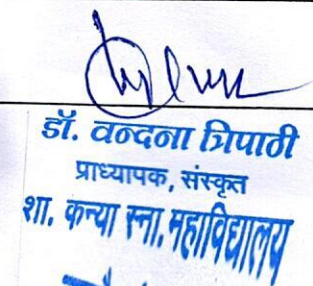 डॉ. वन्दना त्रिपाठी
प्राध्यापक, संस्कृत
शा. कन्या स्ना. महाविद्यालय